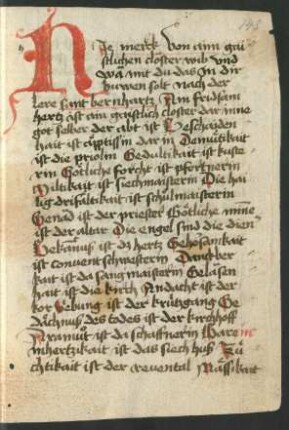 148
Nie merck von aim gai
stlichen closter wib vnd
wa mit du das in dir
buwen solt nach der
lere sant bernhartz Ain fridsam
hertz ist ain gaistlich closter dar inne
got selber der abt ist Beschaiden
hait ist apptissin dar in Demütikait
ist die priolin Gedultikait ist kuste
rin Götliche forcht ist pfortnerin
Miltikait ist siechmaistern Die hai
lig drifaltikait ist schulmaisterin
Genad ist der priester Götliche mine
ist der altar Die engel sind die dien
Bekanus ist dz hertz Gehorsamkait
ist conuentschwestern Danckber
kait ist da sangmaistern Gelasen
hait ist die kirch Andacht ist der
kor Vebung ist der krützgang Ge
dächnus des todes ist der kirchhoff
Armut ist da schaffnerin Bare
mhertzikait ist das siech hus Zü
chtikait ist der reuental Mässikait